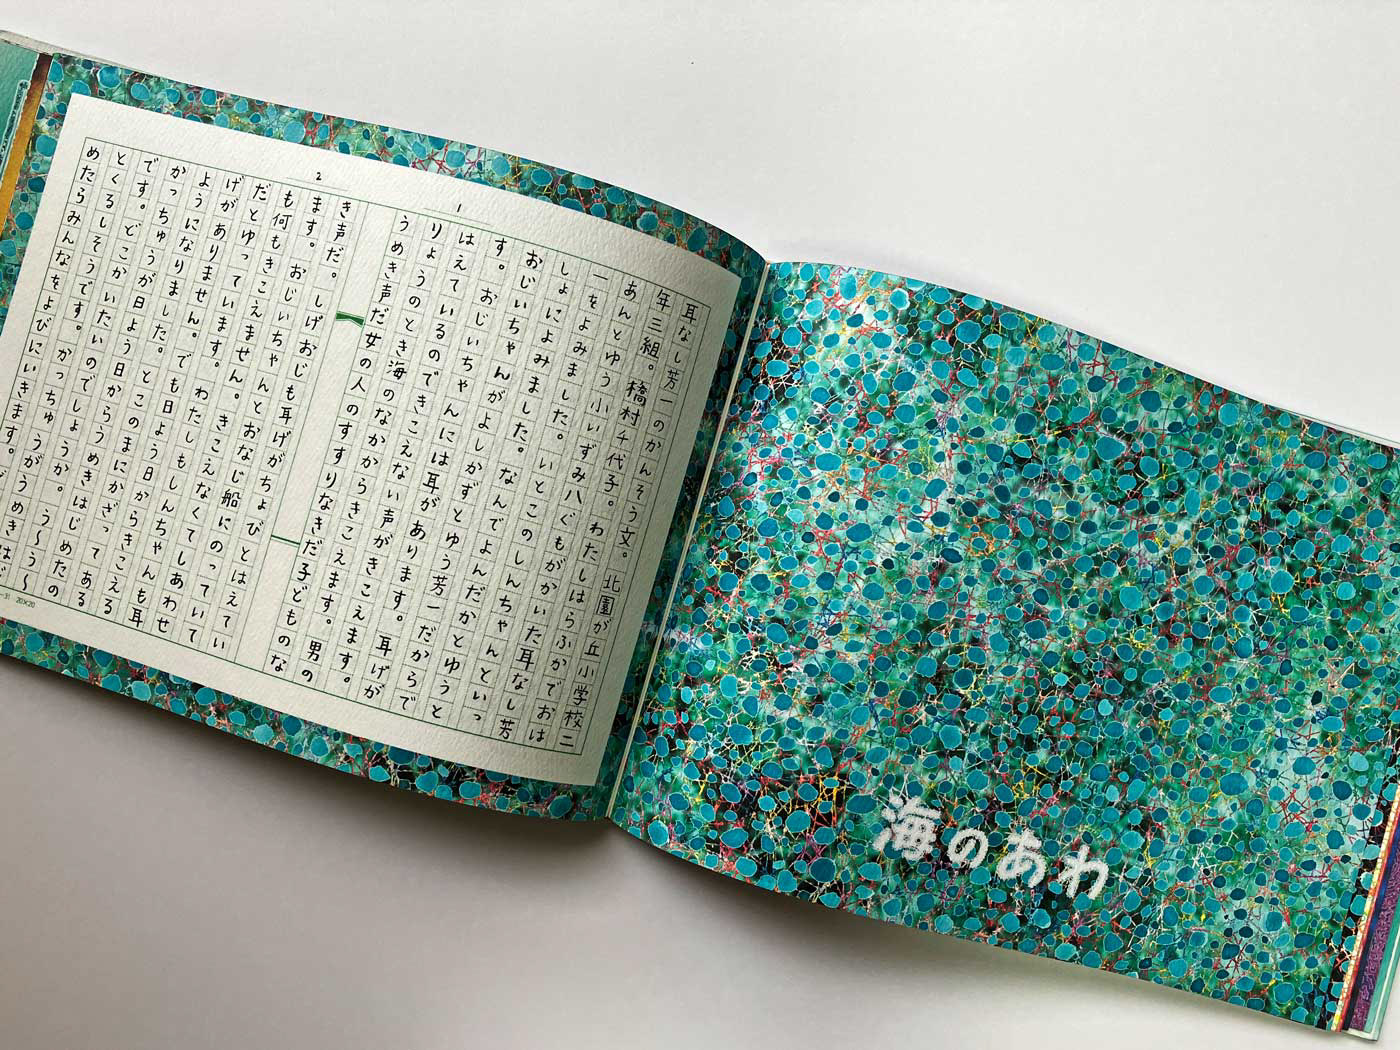 1
耳なし芳一のかんそう文。北園が丘小学校二
年三組。橋村千代子。わたしはらふかでおは
あんとゆう小いずみ八ぐもがかいた耳なし芳
一をよみました。いとこのしんちゃんといっ
しょによみました。なんでよんだかとゆうと
おじいちゃんがよしかずとゆう芳一だからで
す。おじいちゃんには耳があります。耳げが
はえているのできこえない声がきこえます。
りょうのとき海のなかからきこえます。男の
うめき声だ女の人のすすりなきだ子どものな
2
き声だ。しげおじも耳げがちょびとはえてい
ます。おじいちゃんとおなじ船にのっていて
も何もきこえません。きこえなくてしあわせ
だとゆっています。わたしもしんちゃんも耳
げがありません。でも日よう日からきこえる
ようになりました。とこのまにかざってある
かっちゅうが日よう日からうめきはじめたの
です。どこかいたいのでしょうか。う〜う〜
とくるしそうです。かっちゅうがうめきはじ
めたらみんなをよびにいきます。
20×20
海のあわ